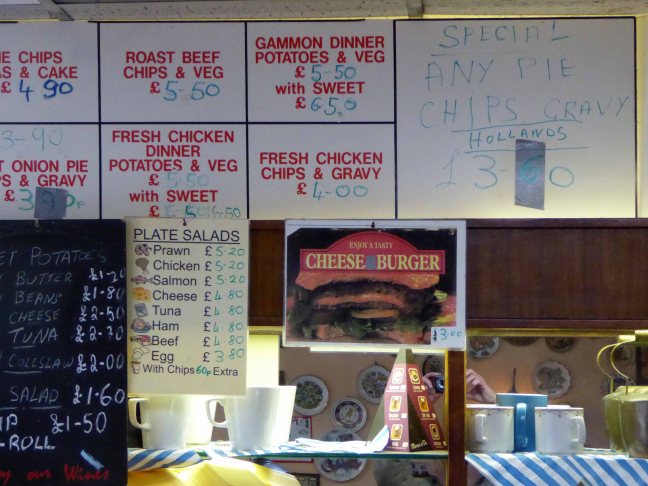 CHIPS
& CAKE
£ 4 90
ROAST BEEF
CHIPS & VEG
£ 5-50
GAMMON DINNER
POTATOES & VEG
£ 5-50
with SWEET
£ 6.50
SPECIAL
ANY PIE
CHIPS GRAVY
HOLLANDS
£3-60
3-90
ONION PIE
& GRAVY
FRESH CHICKEN
DINNER
POTATOES & VEG
£ 5-50
with SWEET
£ 6.50
FRESH CHICKEN
CHIPS & GRAVY
£ 4-00
POTATOES
BUTTER £1-20
BEANS £1-80
CHEESE £2-50
TUNA
COLESLAW £2-00
SALAD £1-60
£1-50
ROLL
our Wines
PLATE SALADS
Prawn £ 5-20
Chicken £ 5-20
Salmon £ 5-20
Cheese £ 4 80
Tuna £ 4 80
Ham £ 4 80
Beef £ 4 80
Egg £ 3 80
With Chips 60p Extra
ENJOY A TASTY
CHEESE BURGER
£3-00